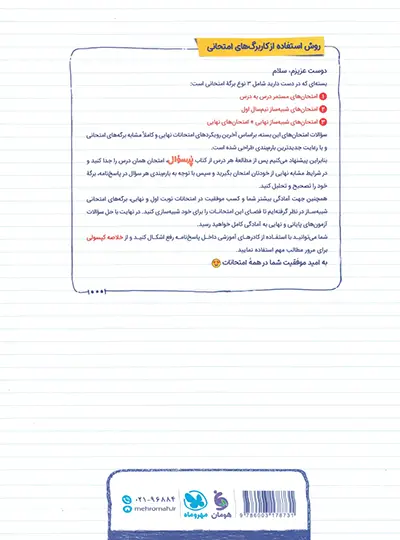 روش استفاده از کاربرگ‌های امتحانی
دوست عزیزم، سلام
بسته‌ای که در دست دارید شامل ۳ نوع برگهٔ امتحانی است:
۱ امتحان‌های مستمر درس به درس
۲ امتحان‌های شبیه‌ساز نیم‌سال اول
۳ امتحان‌های شبیه‌ساز نهایی + امتحان‌های نهایی
سؤالات امتحان‌های این بسته، براساس آخرین رویکردهای امتحانات نهایی و کاملاً مشابه برگه‌های امتحانی
و با رعایت جدیدترین بارم‌بندی طراحی شده است.
بنابراین پیشنهاد می‌کنیم پس از مطالعهٔ هر درس از کتاب پُرسؤال، امتحان همان درس را جدا کنید و
در شرایط مشابه نهایی از خودتان امتحان بگیرید و سپس با توجه به بارم‌بندی هر سؤال در پاسخ‌نامه، برگهٔ
خود را تصحیح و تحلیل کنید.
همچنین جهت آمادگی بیشتر شما و کسب موفقیت در امتحانات نوبت اول و نهایی، برگه‌های امتحانی
شبیه‌ساز در نظر گرفته‌ایم تا فضای این امتحانات را برای خود شبیه‌سازی کنید. در نهایت با حل سؤالات
آزمون‌های پایانی و نهایی به آمادگی کامل خواهید رسید.
شما می‌توانید با استفاده از کادرهای آموزشی داخل پاسخ‌نامه رفع اشکال کنید و از خلاصه کپسولی
برای مرور مطالب مهم استفاده نمایید.
به امید موفقیت شما در همهٔ امتحانات
۰۲۱-۹۶۸۸۴
mehromah.ir
مهروماه
هومان
9 786003 178731